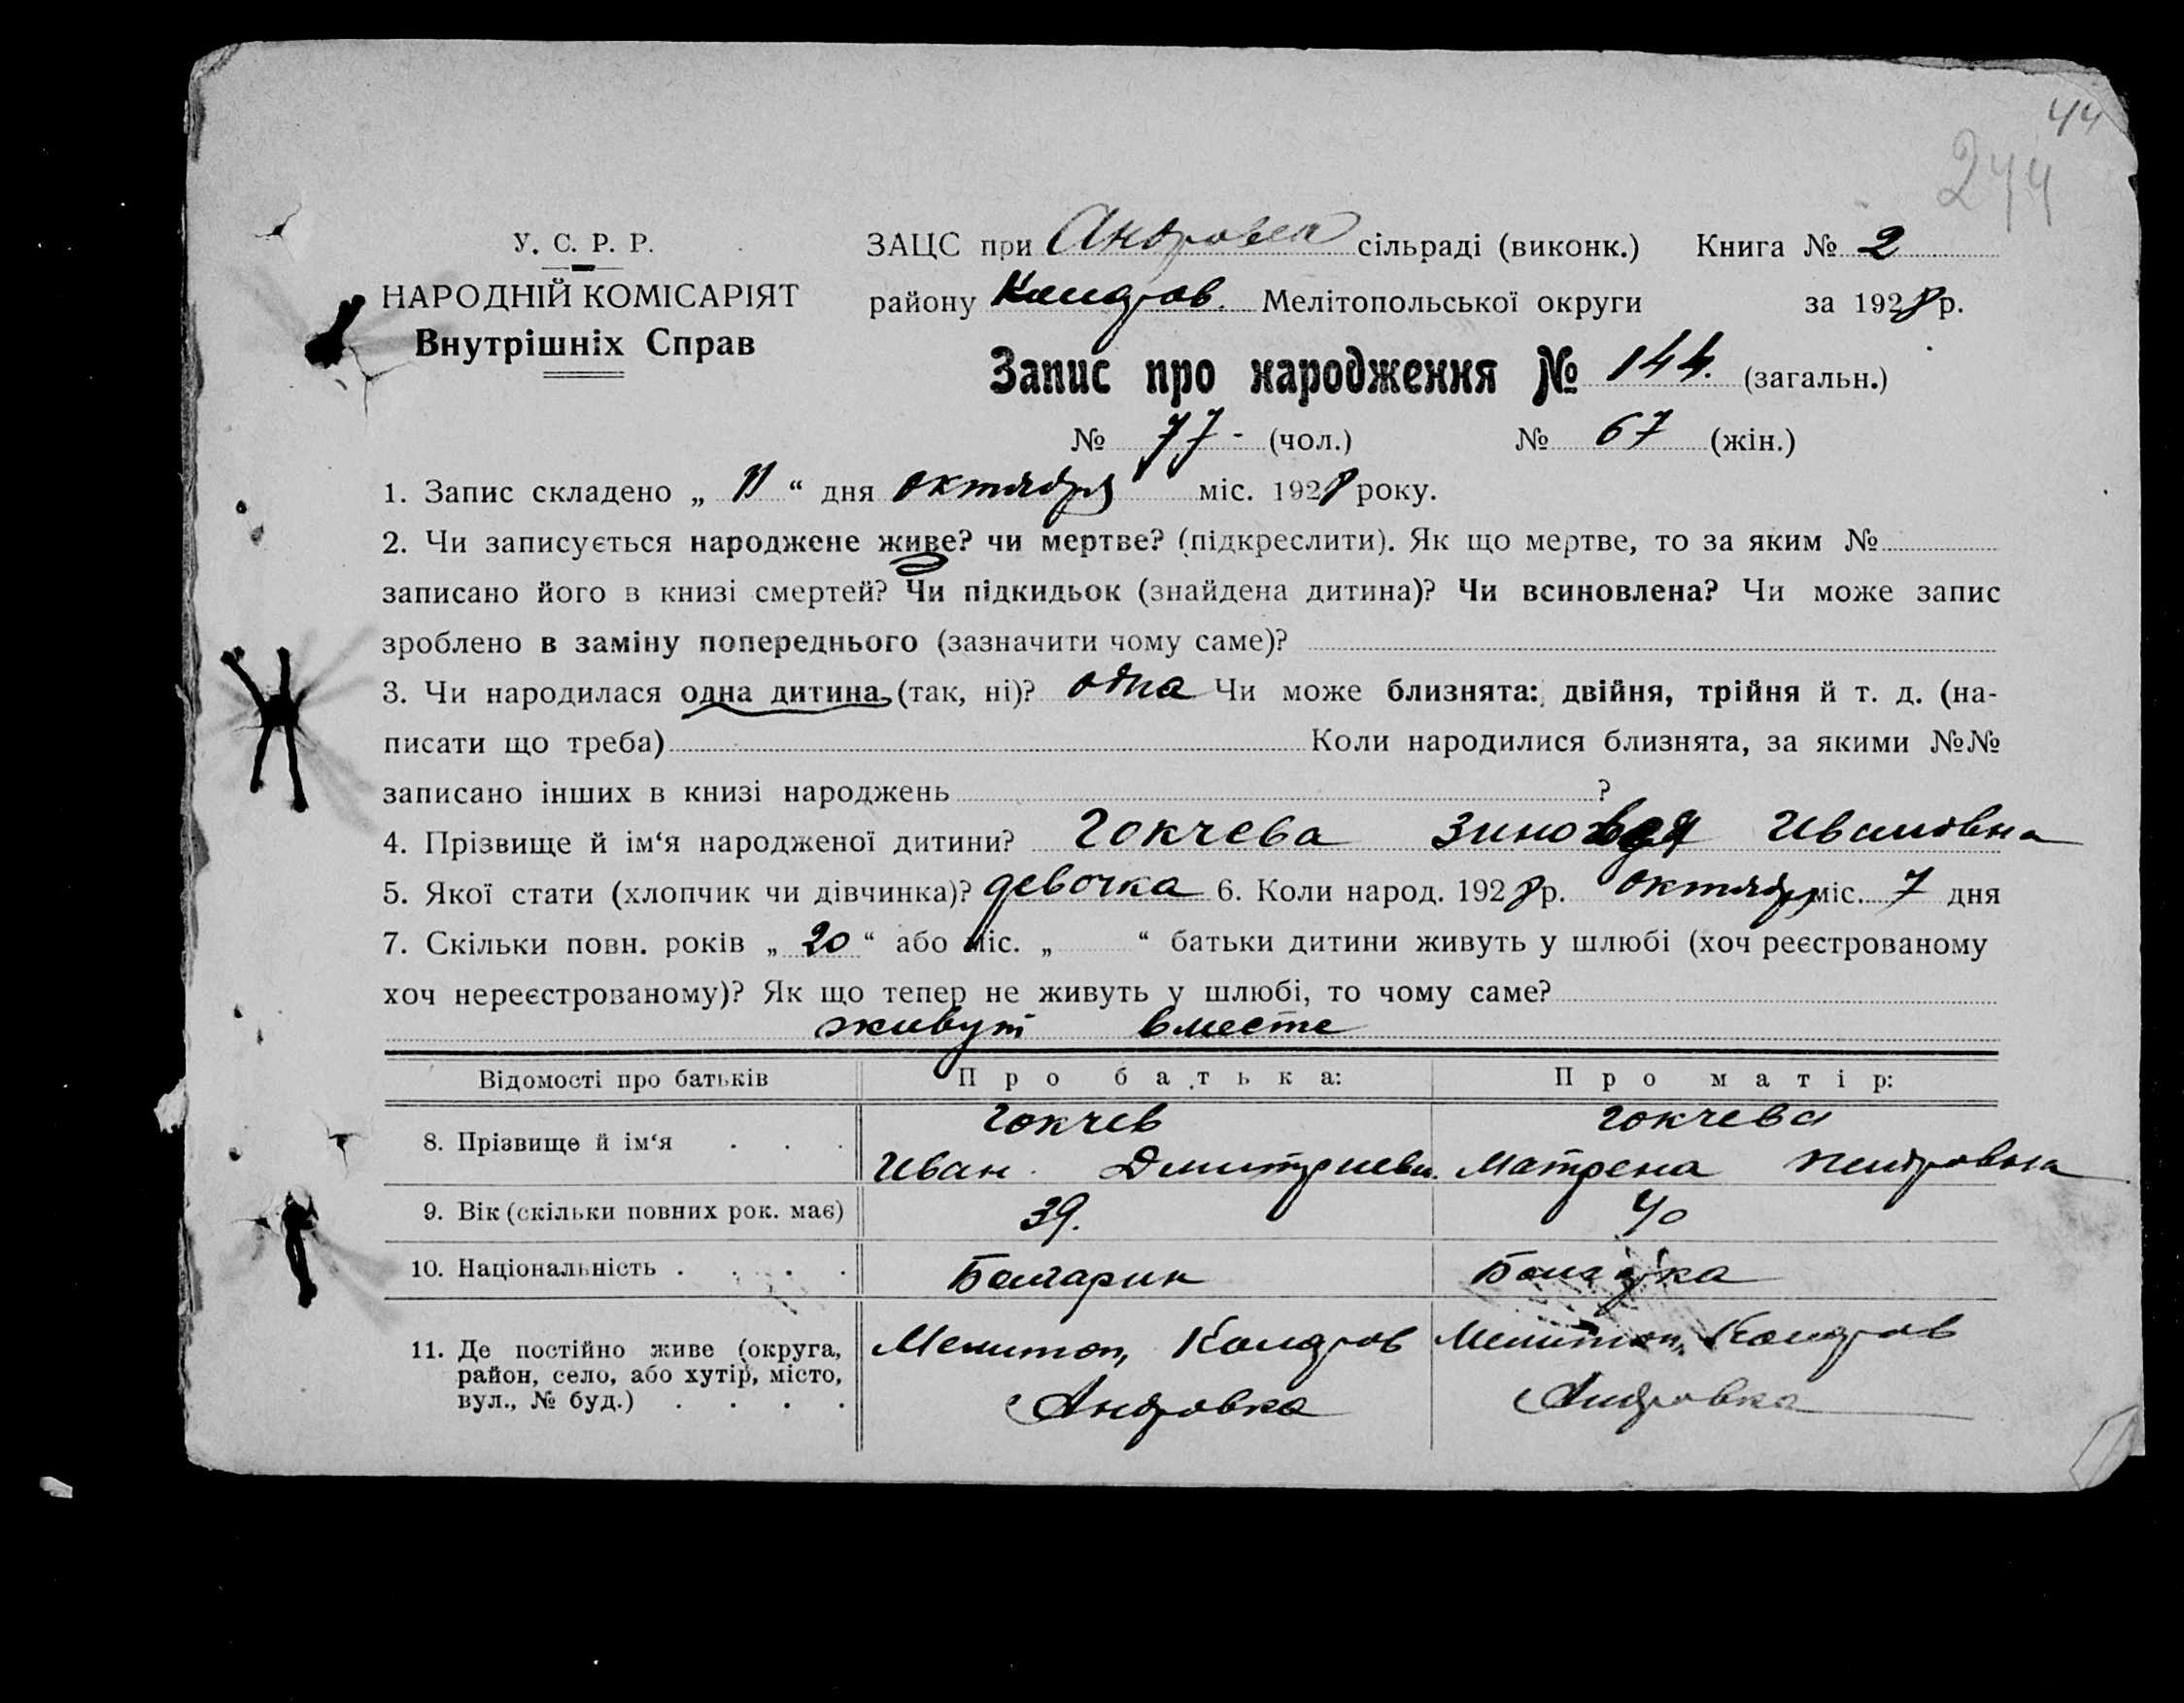 44
244
У. С. Р. Р.
НАРОДНІЙ КОМІСАРІЯТ
Внутрішніх Справ
ЗАЦС при Андровка сільраді (виконк.) Книга № 2
району Мелітопольської округи за 1928 р.
Запис про народження № 144. (загальн.)
№ 77 - (чол.) № 67 (жін.)
1. Запис складено „ 11 “ дня октября міс. 1928 року.
2. Чи записується народжене живе? чи мертве? (підкреслити). Як що мертве, то за яким №
записано його в книзі смертей? Чи підкидьок (знайдена дитина)? Чи всиновлена? Чи може запис
зроблено в заміну попереднього (зазначити чому саме)?
3. Чи народилася одна дитина (так, ні)? одна Чи може близнята: двійня, трійня й т. д. (на-
писати що треба) Коли народилися близнята, за якими №№
записано інших в книзі народжень ?
4. Прізвище й ім‘я народженої дитини? Гокчева Ивановна
5. Якої стати (хлопчик чи дівчинка)? девочка 6. Коли народ. 1928 р. октября міс. 7 дня
7. Скільки повн. років „ 20 “ або міс. „ “ батьки дитини живуть у шлюбі (хоч реєстрованому
хоч нереєстрованому)? Як що тепер не живуть у шлюбі, то чому саме?
живут вместе
Відомості про батьків Про батька: Про матір:
8. Прізвище й ім‘я . . . Гокчев Иван Дмитриев. Гокчева Матрена
9. Вік (скільки повних рок. має) 39. 40
10. Національність . . . . Болгарин Болгарка
11. Де постійно живе (округа,
район, село, або хутір, місто,
вул., № буд.) . . . .
Мелитоп, Мелитоп,
Андровка Андровка